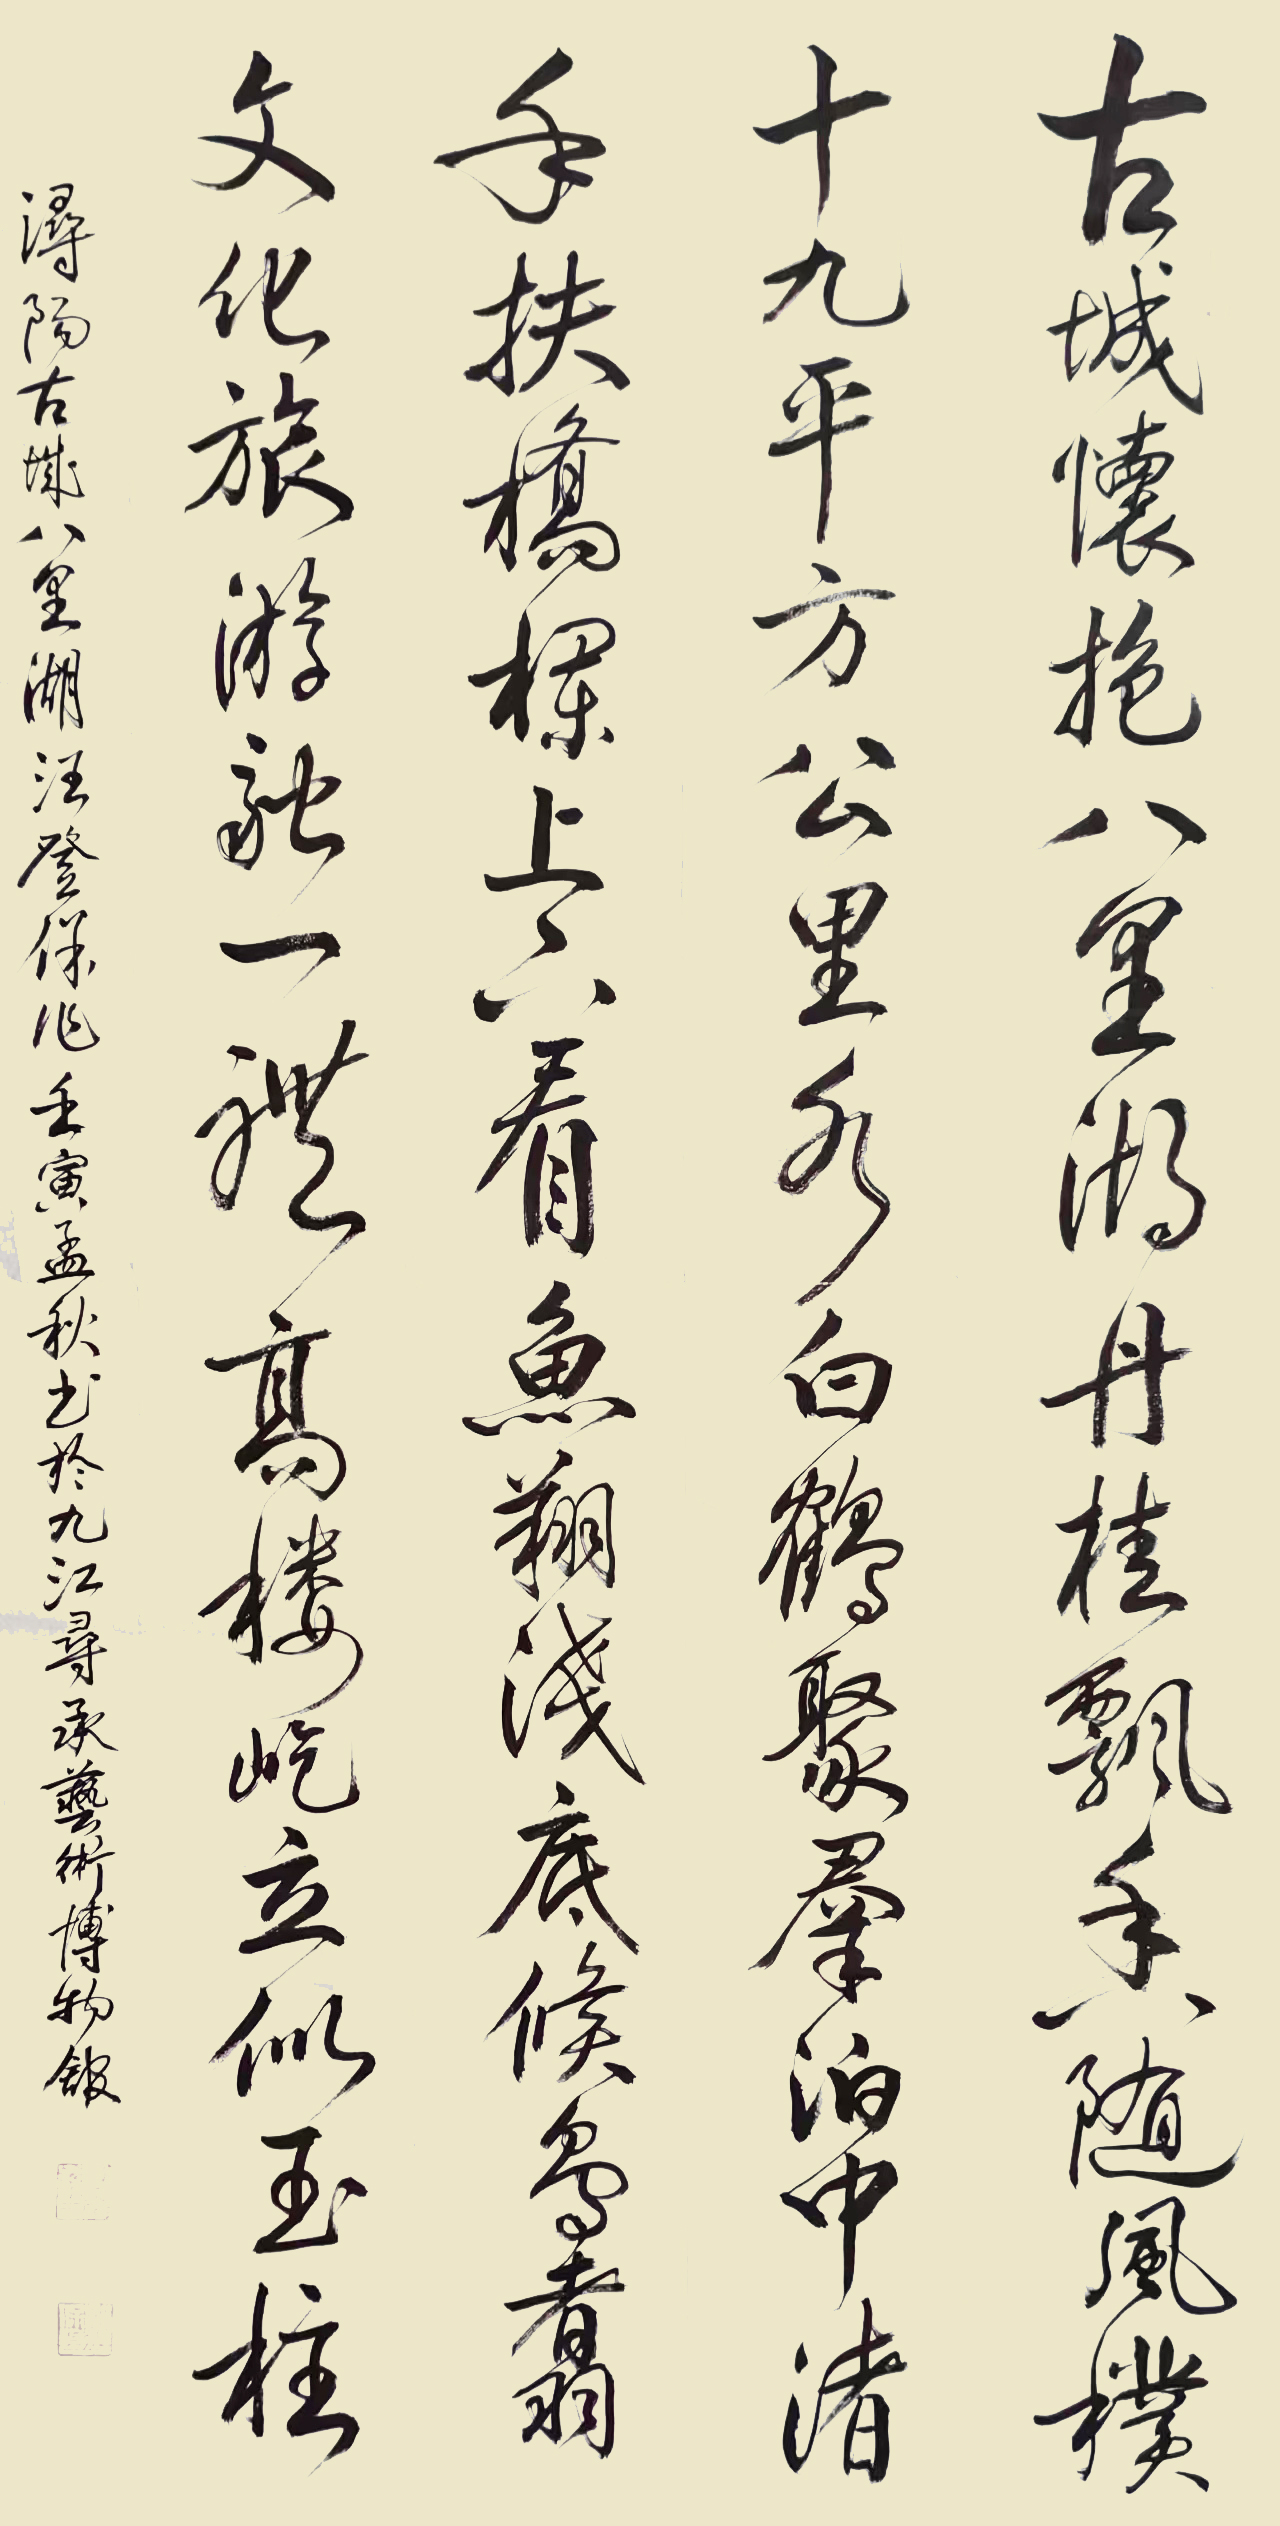 古城懷抱八里湖丹桂飄香随風樸
十九平方公里水白鶴聚羣泊中渚
手扶橋欄上下看魚翔淺底候鳥翥
文化旅游融一體高楼屹立似玉柱
潯陽古城八里湖汪登保作壬寅孟秋书於九江尋承藝術博物館